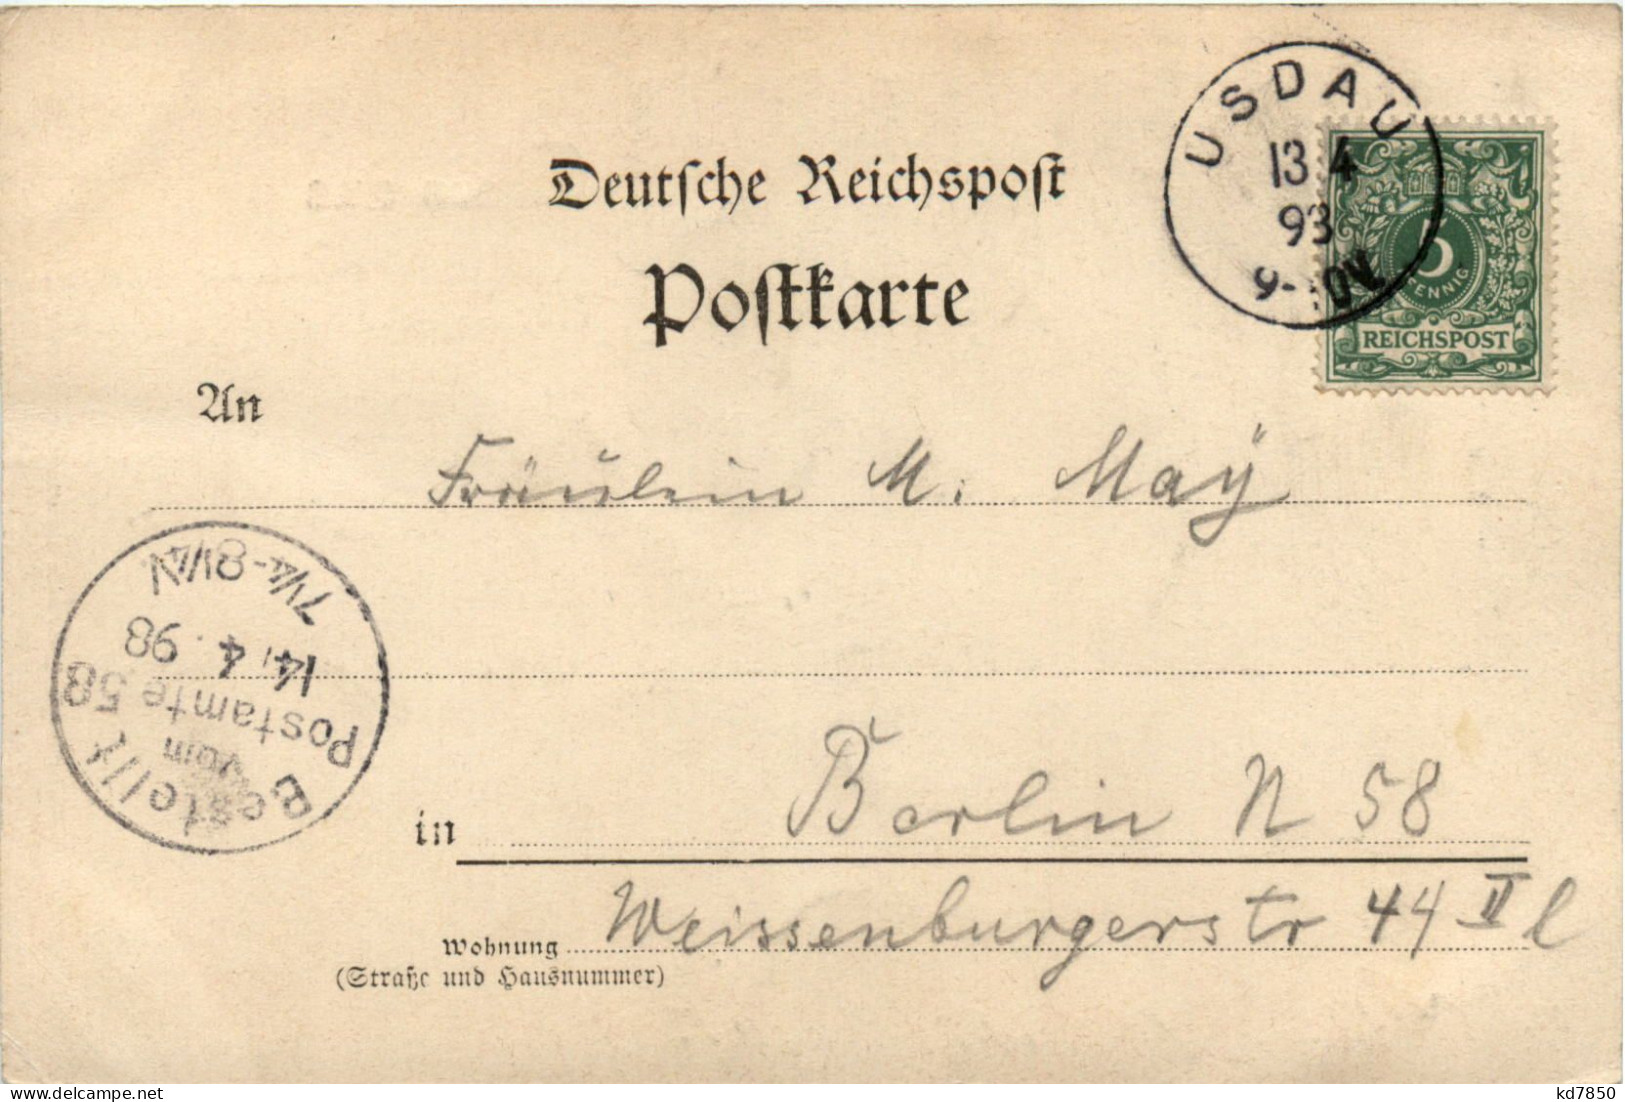 Deutsche Reichspost
Postkarte
USDAU
13 4
98
9-10V.
5
PFENNIG
REICHSPOST
An
Fräulein M. Maÿ
Bestellt
vom
Postamte 58
14. 4. 98
7¼-8¼V
in Berlin N 58
Wohnung Weissenburgerstr 44 II l
(Straße und Hausnummer)
delcampe.net
kd7850